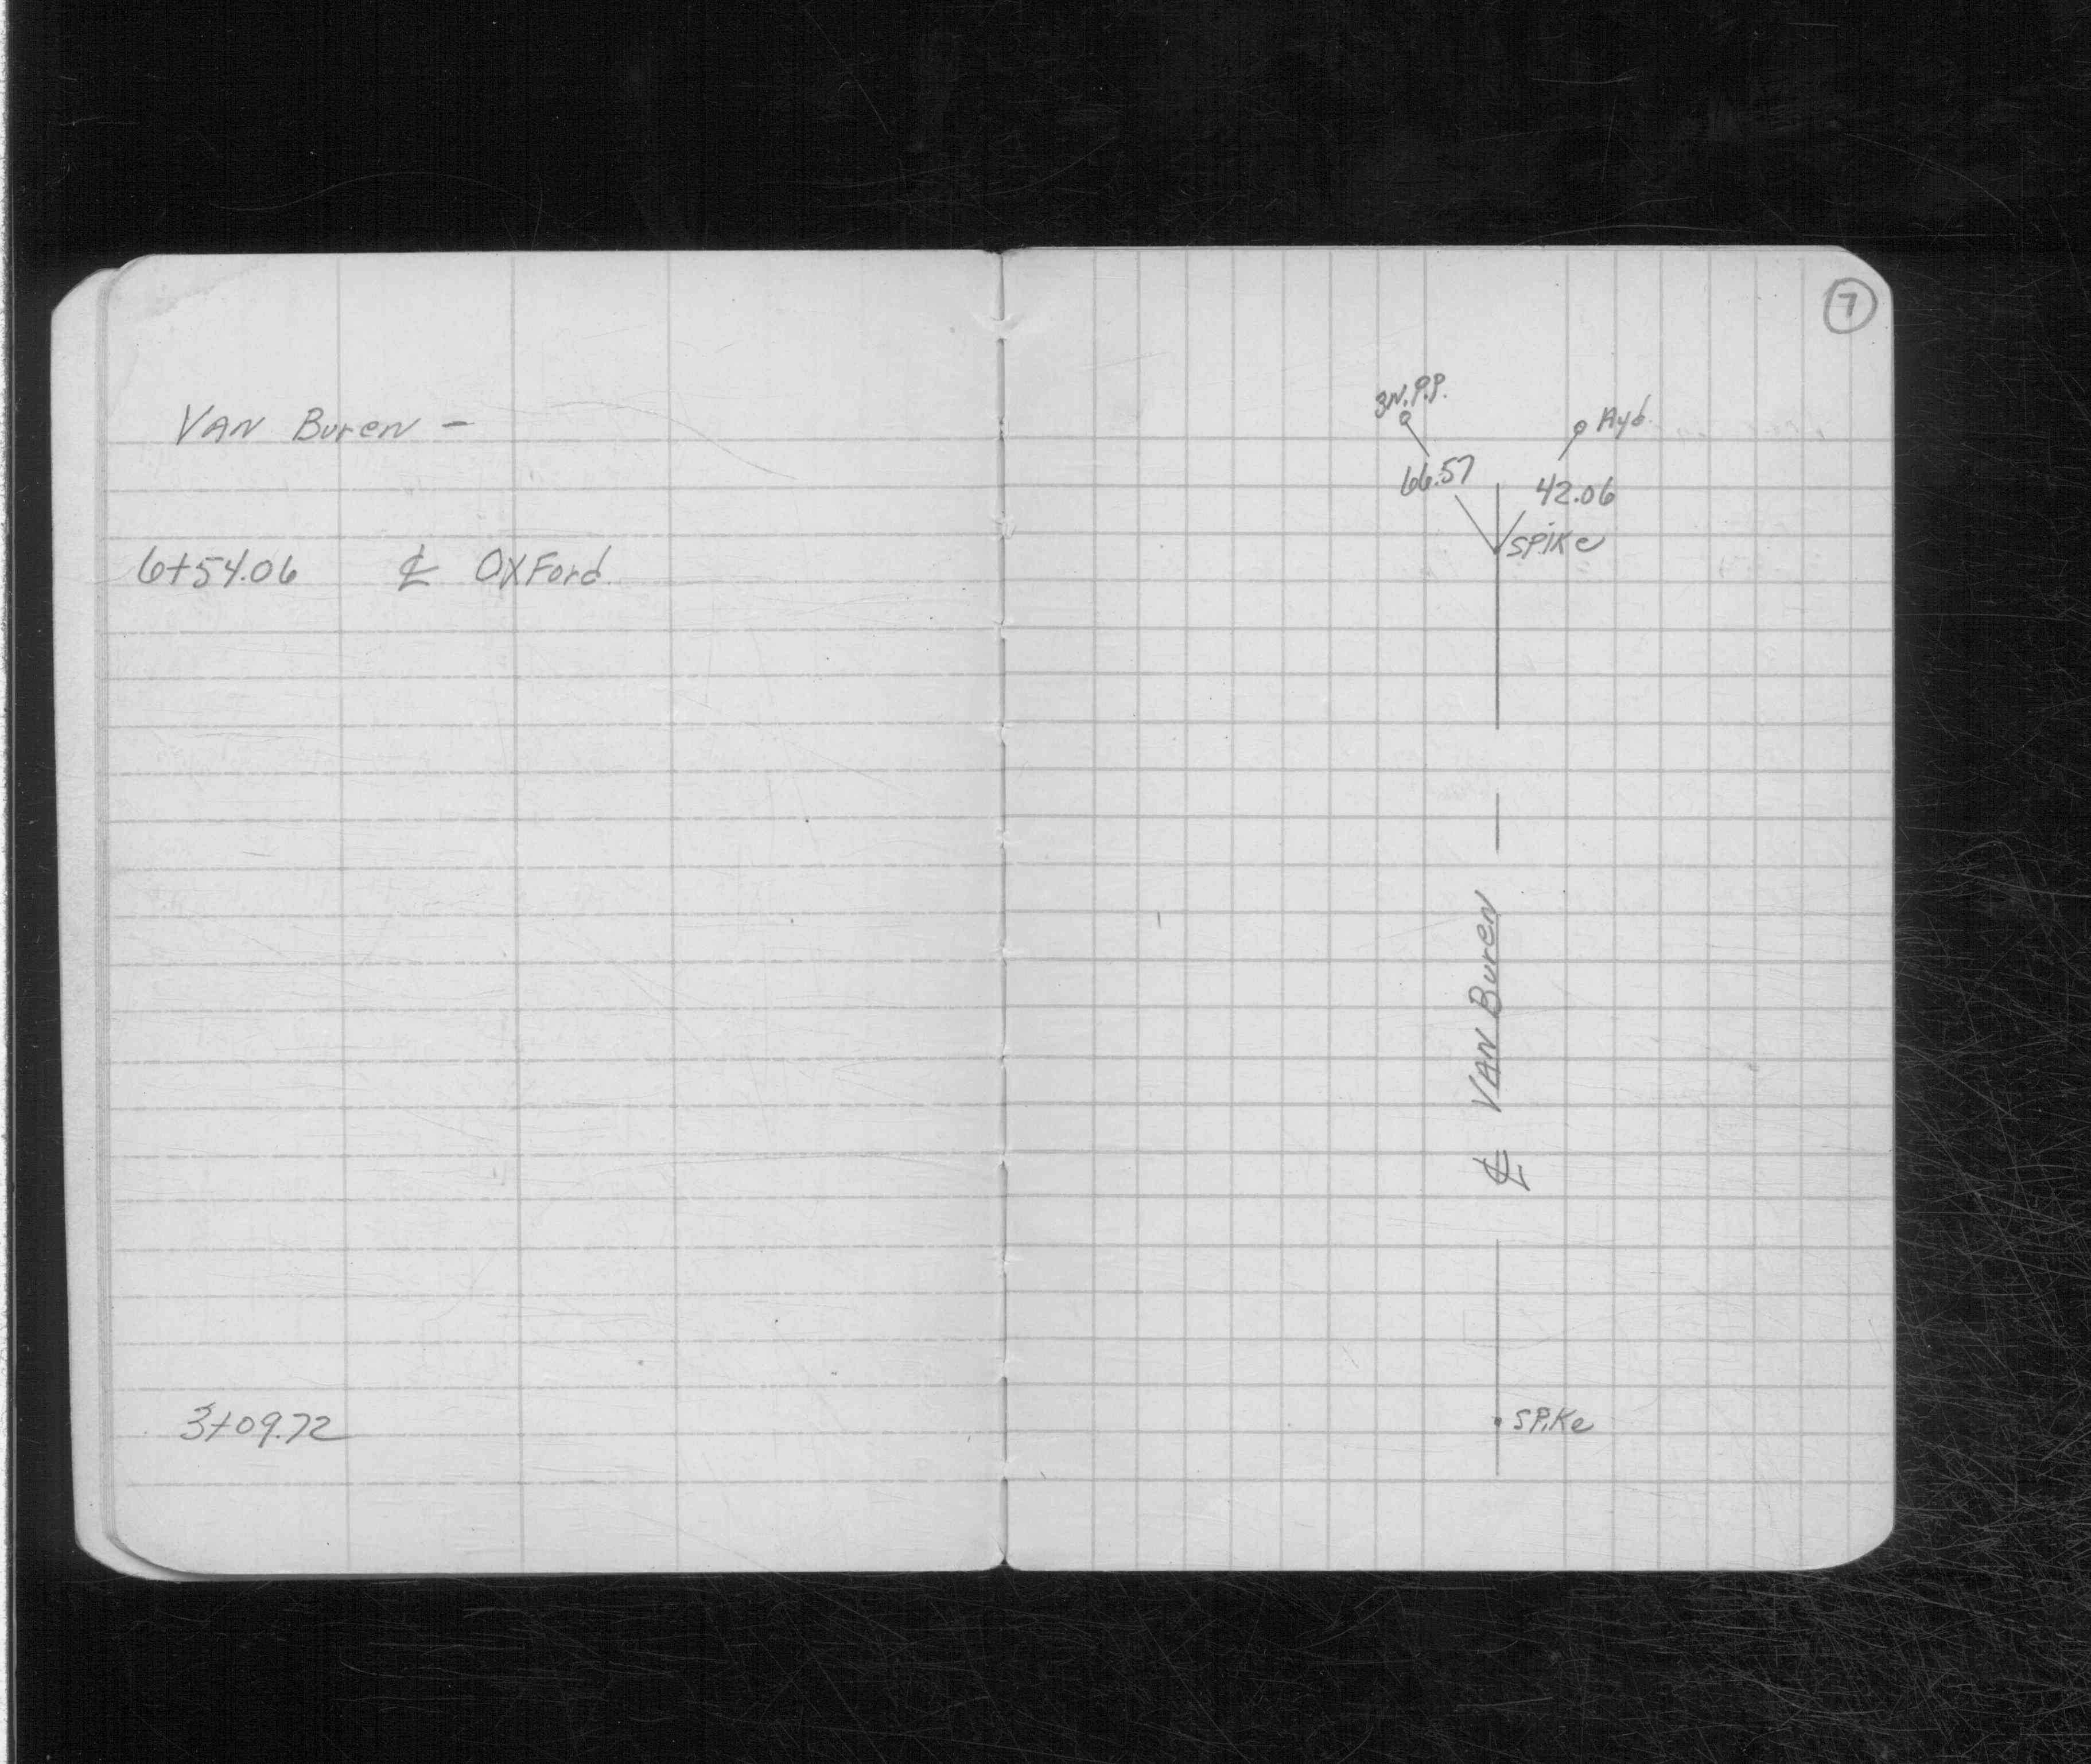 VAN Buren -
6+54.06 ℄ OXFord.
3+09.72
7
3N.P.P.
Hyd.
66.57
42.06
SPiKe
℄ VAN Buren
SPiKe